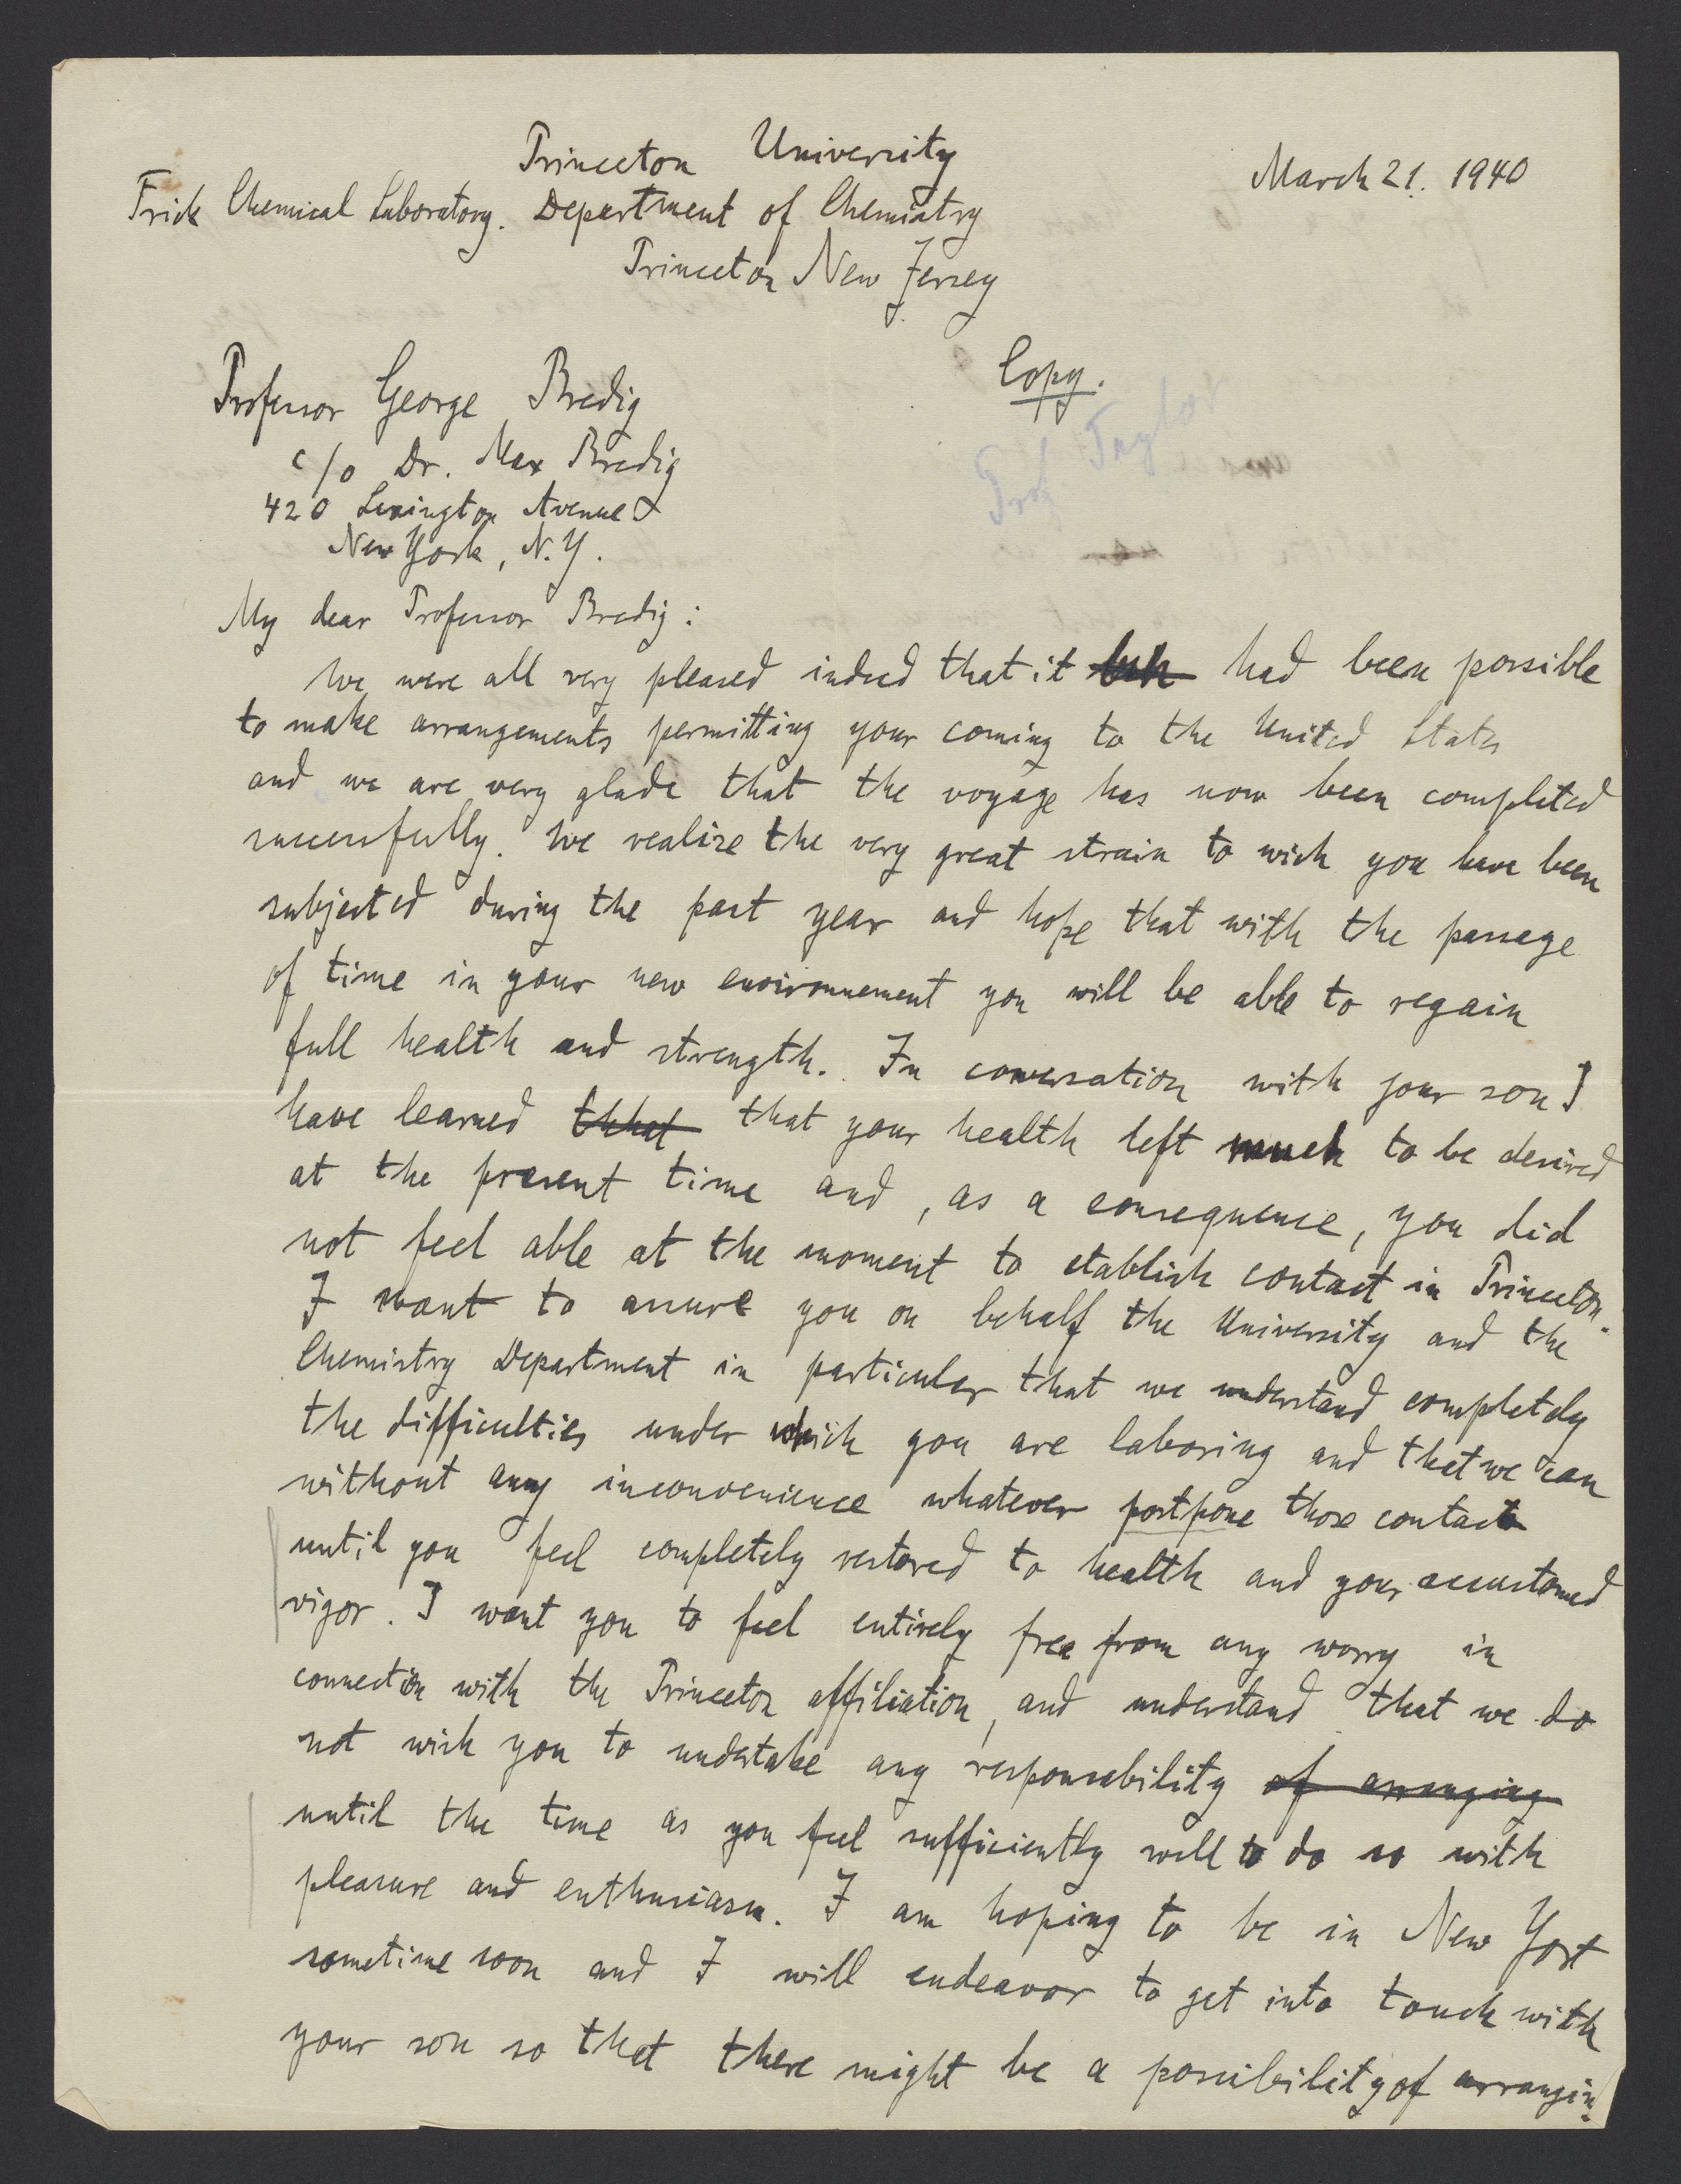 Princeton University
March 21. 1940
Frick Chemical Laboratory. Department of Chemistry
Princeton New Jersey
Copy.
Prof. Taylor
Professor George Bredig
c/o Dr. Max Bredig
420 Lexington Avenue
New York, N.Y.
My dear Professor Bredig:
We were all very pleased indeed that it had been possible
to make arrangements permitting your coming to the United States
and we are very glade that the voyage has now been completed
successfully. We realize the very great strain to wich you have been
subjected during the past year and hope that with the passage
of time in your new environnement you will be able to regain
full health and strength. In conversation with your son I
have learned thhat that your health left much to be desired
at the present time and, as a consequence, you did
not feel able at the moment to etablish contact in Princeton.
I want to assure you on behalf the University and the
Chemistry Department in particular that we understand completely
the difficulties under which you are laboring and that we can
without any inconvenience whatever postpone those contact
until you feel completely restored to health and your accustomed
vigor. I want you to feel entirely free from any worry in
connection with the Princeton affiliation, and understand that we do
not wish you to undertake any responsability of arranging
until the time as you feel sufficiently well to do so with
pleasure and enthusiasm. I am hoping to be in New York
sometime soon and I will endeavor to get into touch with
your son so that there might be a possibility of arranging